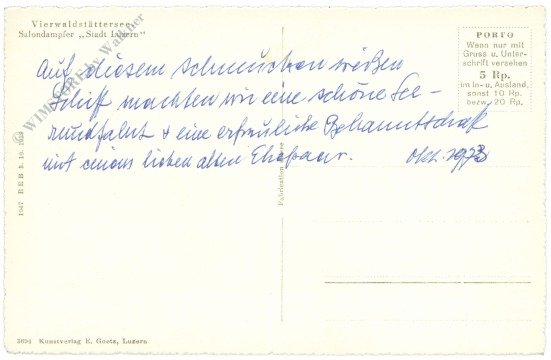 Vierwaldstättersee
Salondampfer „Stadt Luzern"
WIMSTORE by Walther
PORTO
Wenn nur mit
Gruss u. Unter-
schrift versehen
5 Rp.
im In- u. Ausland,
sonst 10 Rp.
bezw. 20 Rp.
Auf diesem schmucken weißen
Schiff machten wir eine schöne See-
rundfahrt + eine erfreuliche Bekanntschaft
mit einem lieben alten Ehepaar. Okt. 1973
1047 REB
Fabrication Suisse
3694 Kunstverlag E. Goetz, Luzern